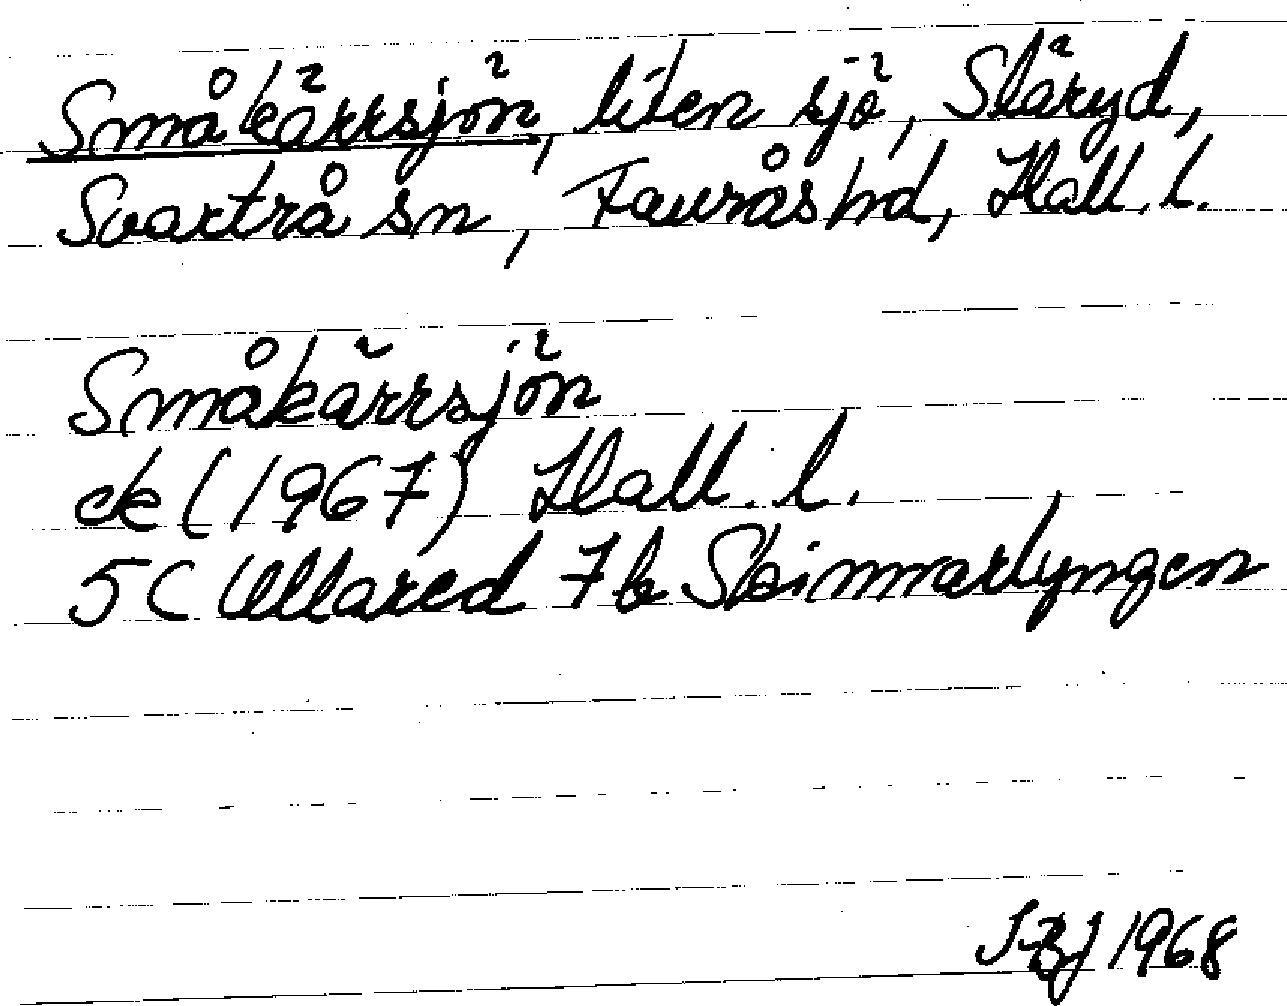 Småkärrsjön, liten sjö, Släryd,
Svartrå sn, Faurås hd, Hall. l.
Småkärrsjön
ek (1967) Hall. l.
5C Ullared 7b Skinnarlyngen
1968